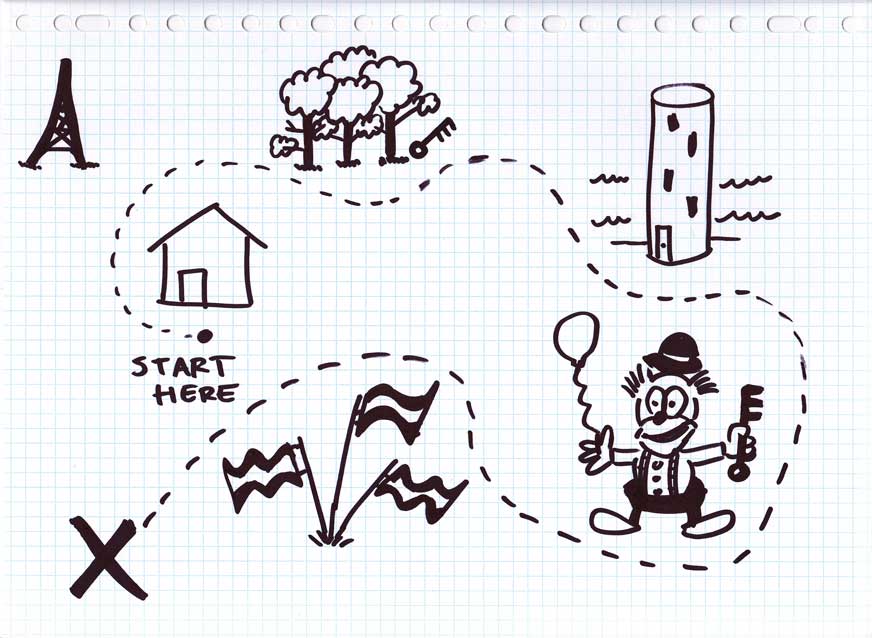 START
HERE
X